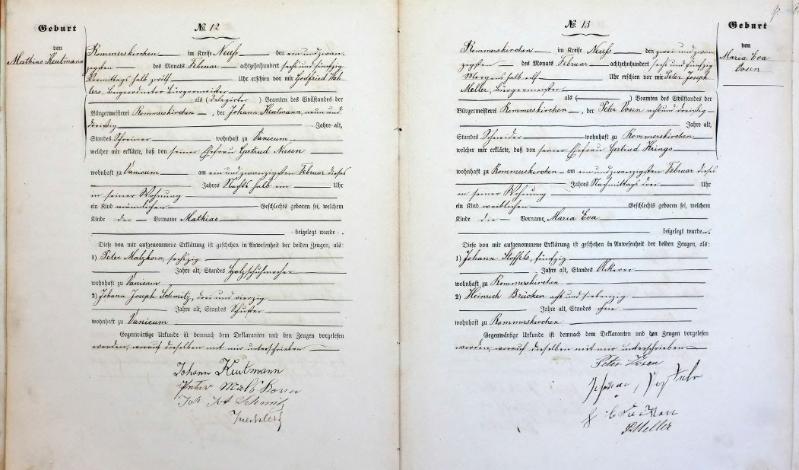 Geburt
von
Mathias Keulmann
№ 12
Rommerskirchen im Kreise Neuss den ein und zwan-
zigsten des Monats Februar achtzehnhundert sechs und fünfzig
Vormittags halb zwölf Uhr erschien vor mir Gottfried
Beigeordneter Bürgermeister
als (delegirter) Beamten des Civilstandes der
Bürgermeisterei Rommerskirchen, der Johann Keulmann, neun und
dreißig Jahre alt,
Standes Schreiner wohnhaft zu Vanicum
welcher mir erklärte, daß von seiner Ehefrau Gertrud
wohnhaft zu Vanicum am ein und zwanzigsten Februar dieses
Jahres Nachts halb ein Uhr
in seiner Wohnung
ein Kind männlichen Geschlechts geboren sei, welchem
Kinde der Vorname Mathias
beigelegt wurde.
Diese von mir aufgenommene Erklärung ist geschehen in Anwesenheit der beiden Zeugen, als:
1) Peter sechzig
Jahre alt, Standes Holzschuhmacher
wohnhaft zu Vanicum
2) Johann Joseph Schmitz, drei und vierzig
Jahre alt, Standes Schuster
wohnhaft zu Vanicum
Gegenwärtige Urkunde ist demnach dem Deklaranten und den Zeugen vorgelesen
worden, worauf dieselben mit mir unterschrieben
Johann Keulmann
Peter
№ 13
Geburt
von
Maria Eva
Rommerskirchen im Kreise Neuss den zwei und zwan-
zigsten des Monats Februar achtzehnhundert sechs und fünfzig
Morgens halb elf Uhr erschien vor mir Peter Joseph
Meller, Bürgermeister
als Beamten des Civilstandes der
Bürgermeisterei Rommerskirchen, der Peter acht und dreißig
Jahre alt,
Standes Schneider wohnhaft zu Rommerskirchen
welcher mir erklärte, daß von seiner Ehefrau Gertrud
wohnhaft zu Rommerskirchen am ein und zwanzigsten Februar dieses
Jahres Nachmittags drei Uhr
in seiner Wohnung
ein Kind weiblichen Geschlechts geboren sei, welchem
Kinde die Vorname Maria Eva
beigelegt wurde.
Diese von mir aufgenommene Erklärung ist geschehen in Anwesenheit der beiden Zeugen, als:
1) Johann fünfzig
Jahre alt, Standes Ackerer
wohnhaft zu Rommerskirchen
2) Heinrich Brücken acht und siebenzig
Jahre alt, Standes ohne
wohnhaft zu Rommerskirchen
Gegenwärtige Urkunde ist demnach dem Deklaranten und den Zeugen vorgelesen
worden, worauf dieselben mit mir unterschrieben
Peter
Meller